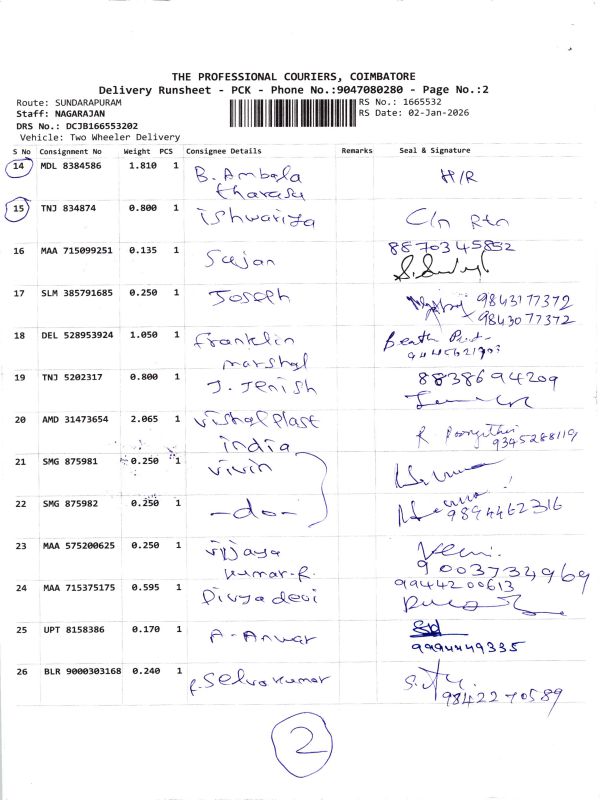 THE PROFESSIONAL COURIERS, COIMBATORE
Delivery Runsheet - PCK - Phone No.:9047080280 - Page No.:2
Route: SUNDARAPURAM
RS No.: 1665532
Staff: NAGARAJAN
RS Date: 02-Jan-2026
DRS No.: DCJB166553202
Vehicle: Two Wheeler Delivery
S No Consignment No Weight PCS Consignee Details Remarks Seal & Signature
14 MDL 8384586 1.810 1 B. Ambala H/R
tharasu
15 TNJ 834874 0.800 1 ishwariya C/n Rtn
16 MAA 715099251 0.135 1 Sajan 8870345852
17 SLM 385791685 0.250 1 Joseph 9843177372
9843077372
18 DEL 528953924 1.050 1 franklin
marshal
19 TNJ 5202317 0.800 1 J. Jenish 8838694209
20 AMD 31473654 2.065 1 vishal plast
india 9345288119
21 SMG 875981 0.250 1 vivin
22 SMG 875982 0.250 1 -do-
9894462316
23 MAA 575200625 0.250 1 vijaya
kumar.R. 9003734969
24 MAA 715375175 0.595 1 Divyadevi 9944200613
25 UPT 8158386 0.170 1 A-Anwar
9994449335
26 BLR 9000303168 0.240 1 Selvakumar
9842270589
2